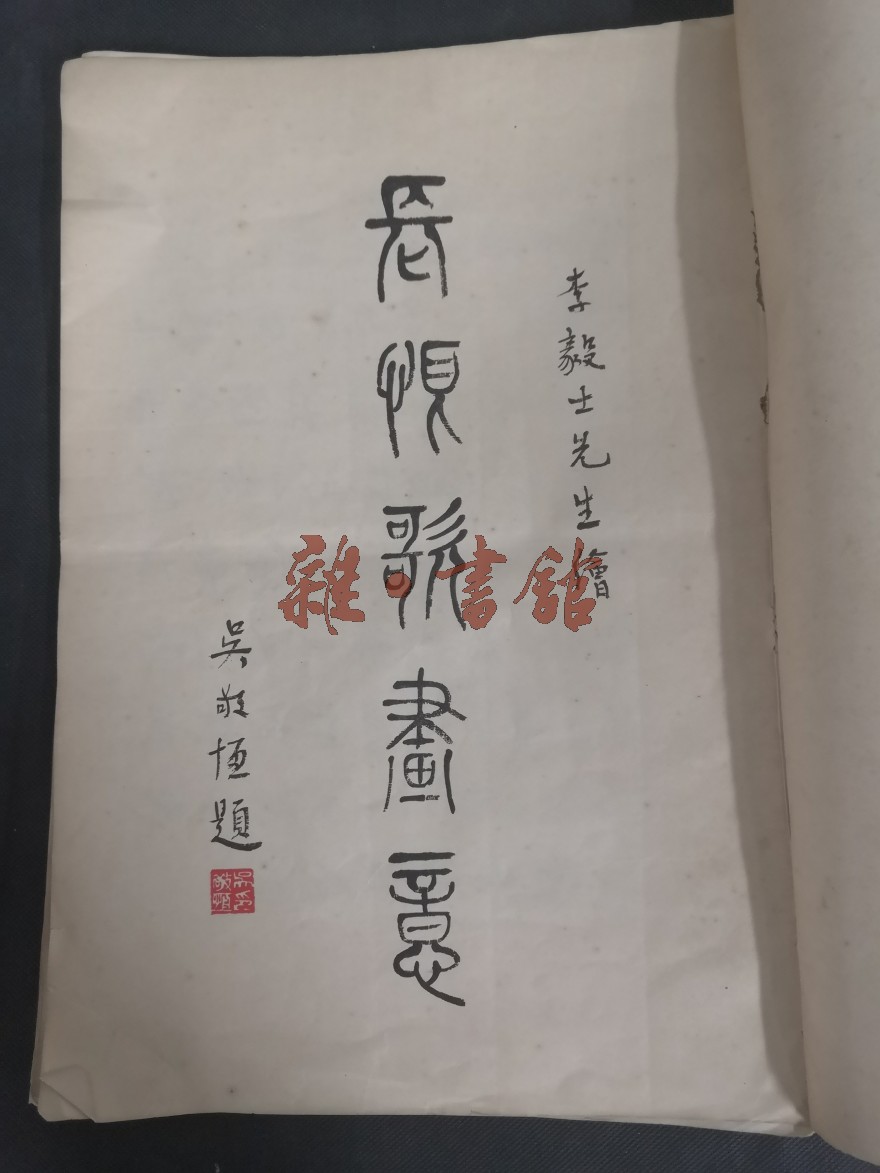 李毅士先生繪
長恨歌畫意
吳敬恆題
吳印敬恆
雜·書館